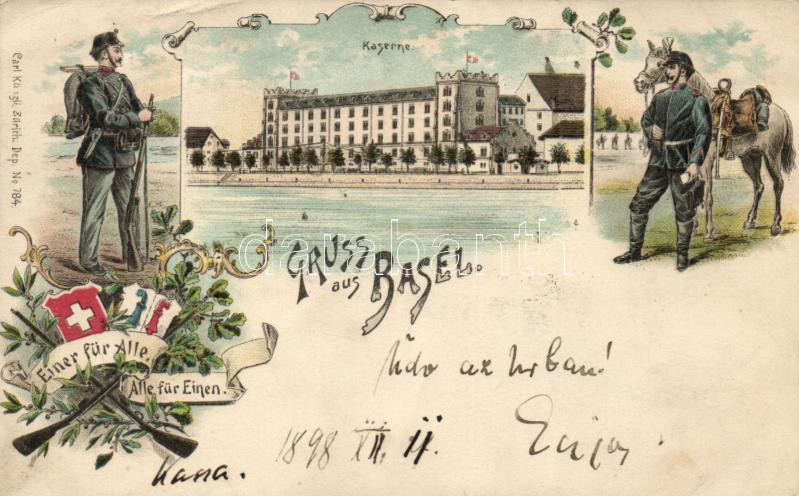 Carl Künzli, Zürich. Dep. No 784.
Kaserne.
GRUSS
aus BASEL.
Einer für Alle.
Alle für Einen.
darabanth
Üdv az Urban!
1898 XII. 11.